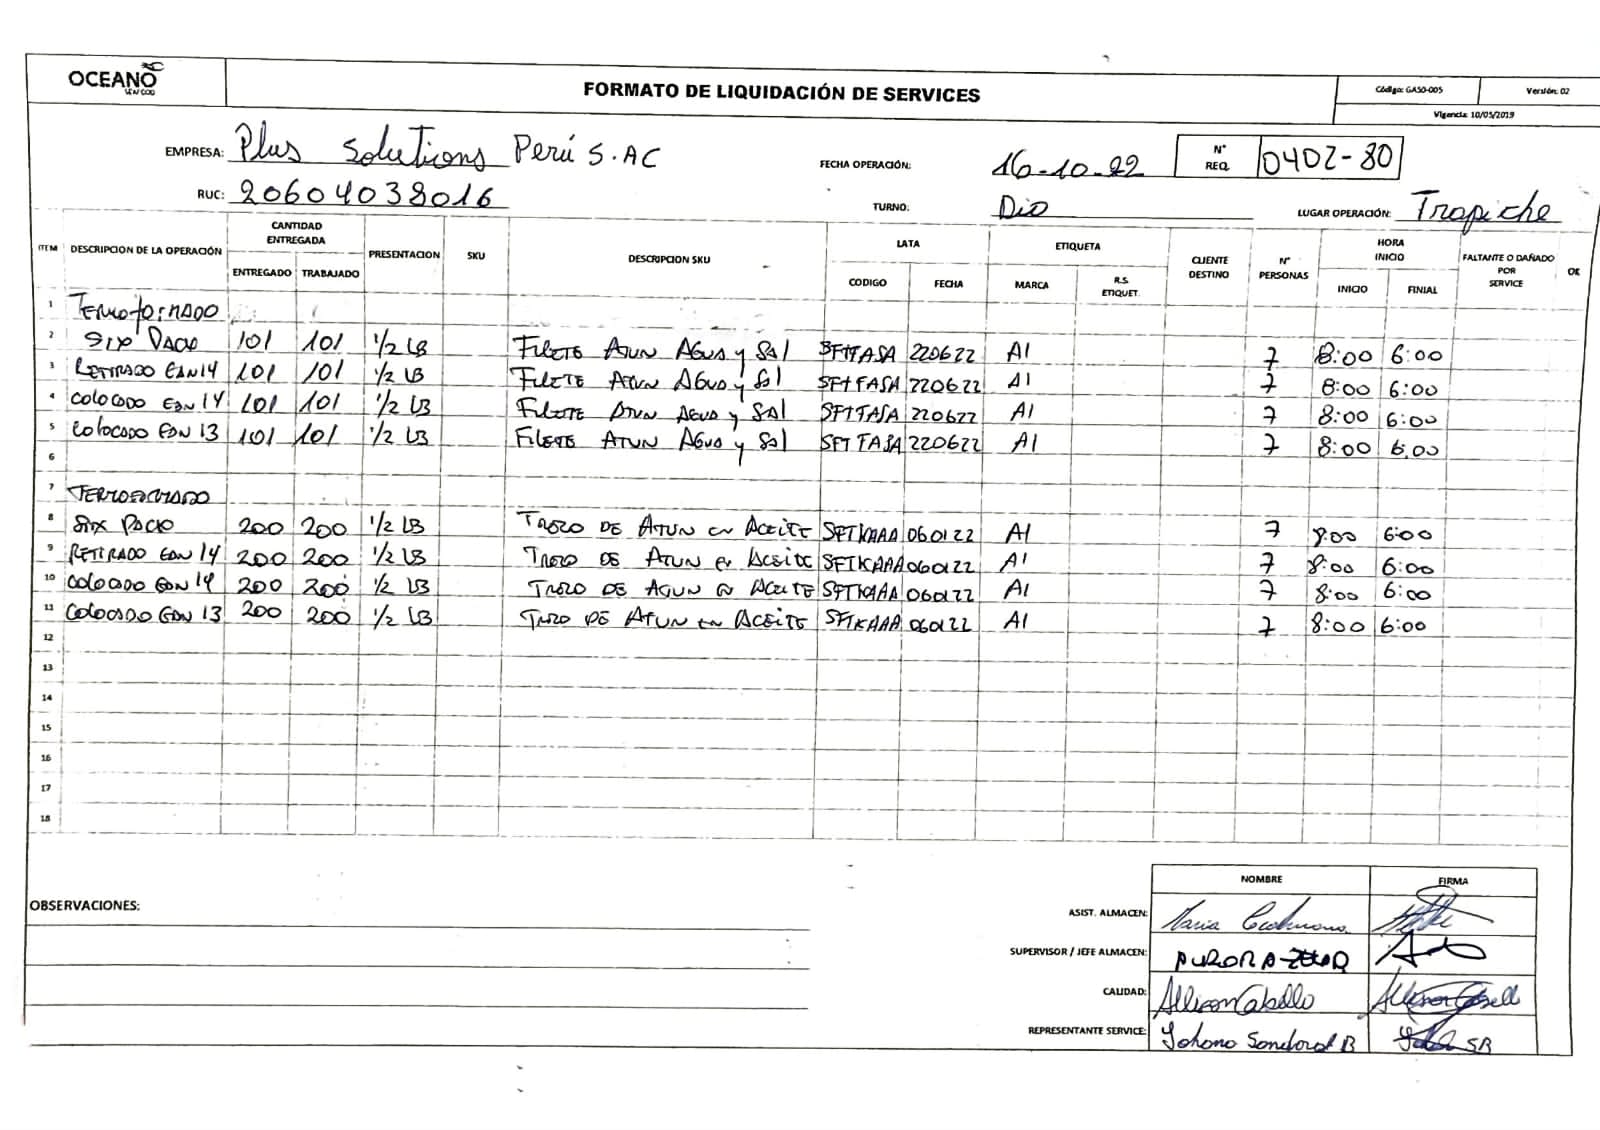 OCEANO
SEAFOOD
FORMATO DE LIQUIDACIÓN DE SERVICES
Código: GA50-005
Versión: 02
Vigencia: 10/05/2019
EMPRESA: Plus Solutions Perú S.AC
FECHA OPERACIÓN: 16-10-22
N° REQ. 0402-80
RUC: 20604038016
TURNO: Dia
LUGAR OPERACIÓN: Trapiche
ITEM DESCRIPCION DE LA OPERACIÓN CANTIDAD ENTREGADA PRESENTACION SKU DESCRIPCION SKU LATA ETIQUETA CLIENTE DESTINO N° PERSONAS HORA INICIO FALTANTE O DAÑADO POR SERVICE
ENTREGADO TRABAJADO CODIGO FECHA MARCA R.S. ETIQUET. INICIO FINIAL
1 Termoformado
2 Six Pack 101 101 1/2 LB Filete Atun Agua y Sal SFTFASA 220622 A1 7 8:00 6:00
3 Retirado EAN 14 101 101 1/2 LB Filete Atun Agua y Sal SFTFASA 220622 A1 7 8:00 6:00
4 Colocado EAN 14 101 101 1/2 LB Filete Atun Agua y Sal SFTFASA 220622 A1 7 8:00 6:00
5 Colocado EAN 13 101 101 1/2 LB Filete Atun Agua y Sal SFTFASA 220622 A1 7 8:00 6:00
6
7 Termoformado
8 Six Pack 200 200 1/2 LB Trozo de Atun en Aceite SFTKAAA 060122 A1 7 8:00 6:00
9 Retirado EAN 14 200 200 1/2 LB Trozo de Atun en Aceite SFTKAAA 060122 A1 7 8:00 6:00
10 Colocado EAN 14 200 200 1/2 LB Trozo de Atun en Aceite SFTKAAA 060122 A1 7 8:00 6:00
11 Colocado EAN 13 200 200 1/2 LB Trozo de Atun en Aceite SFTKAAA 060122 A1 7 8:00 6:00
12
13
14
15
16
17
18
NOMBRE FIRMA
OBSERVACIONES:
ASIST. ALMACEN: Maria
SUPERVISOR / JEFE ALMACEN: AURORA
CALIDAD: Allison Cabello
REPRESENTANTE SERVICE: Johana Sandoval B